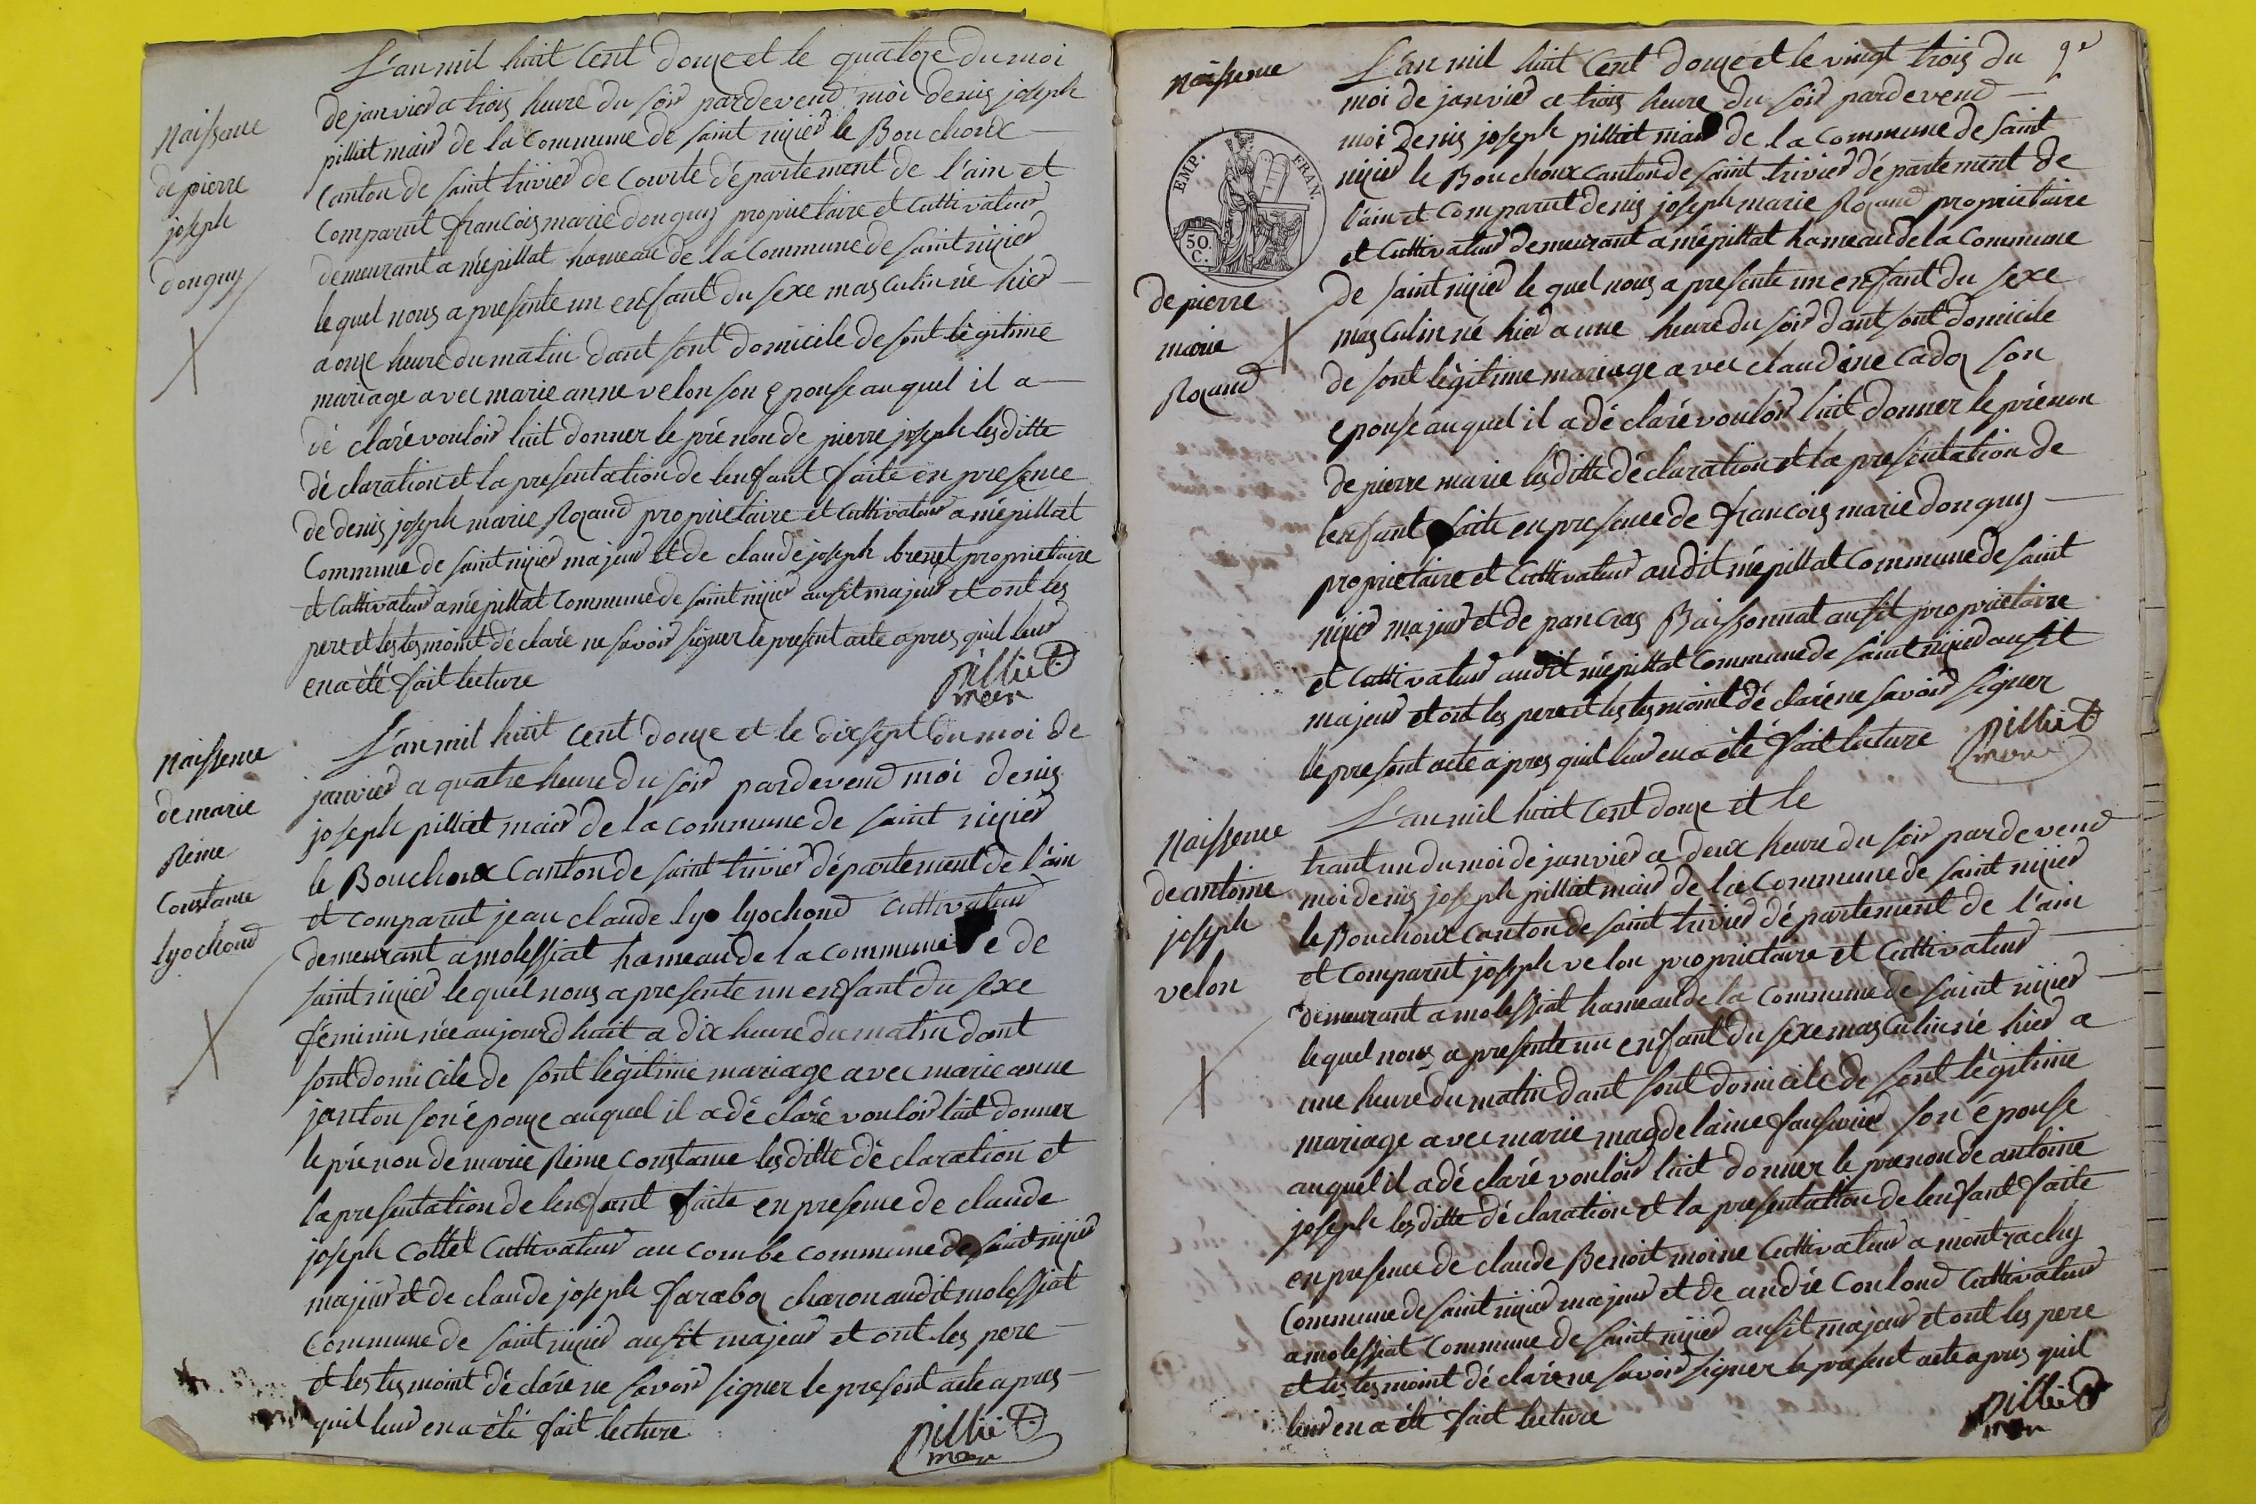 L'an mil huit Cent douze et le quatoze du moi
de janvier a trois heure du soir pardevend moi denis joseph
pilliat mair de la Commune de saint nizier le Bouchoux
Canton de saint trivier de Courte département de l'ain et
Comparut francois marie donguy proprietaire et Cuttivateur
demeurant a mépillat hameau de la Commune de saint nizier
le quel nous a presente un enfant du sexe masculin né hier
a onze heure du matin dant sont domicile de sont légitime
mariage avec marie anne velon son epouse au quel il a
dé claré vouloir luit donner le pré non de pierre joseph les ditte
dé claration et la presentation de lenfant faite en presence
de denis joseph marie Rozand proprietaire et Cuttivateur a mépillat
Commune de saint nizier majeur et de claude joseph brenet proprietaire
et Cuttivateur a mépillat Commune de saint nizier ausit majeur et ont les
pere et les tesmoint dé claré ne savoir signer le present acte apres quil leur
en a été fait lecture
pilliet
mair
Naissence
de pierre
joseph
donguy
L'an mil huit Cent douze et le dix sept du moi de
janvier a quatre heure du soir pardevend moi denis
joseph pilliat mair de la commune de saint nizier
le Bouchoux Canton de saint trivier département de l'ain
et comparut jean claude lyo lyochond Cuttivateur
demeurant a molessiat hameau de la commune e de
saint nizier le quel nous a presente un enfant du sexe
féminin née aujourd huit a dix heure du matin dant
sont domicile de sont légitime mariage avec marie anne
janton son épouze auquel il a dé claré vouloir luit donner
le pré non de marie Reine Constance les ditte dé claration et
la presentation de lenfant faite en presence de claude
joseph Cottet Cuttivateur au combe commune de saint nizier
majeur et de claude joseph faraboz charon audit molessiat
Commune de saint nizier ausit majeur et ont les pere
et les tesmoint dé claré ne savoir signer le present acte apres
quil leur en a été fait lecture
pilliet
mair
Naissence
de marie
Reine
Constance
lyochond
Naissence
EMP. FRAN.
50.
C.
de pierre
marie
Rozand
L'an mil huit Cent douze et le vingt trois du
moi de janvier a trois heure du soir pardevend
moi denis joseph pilliat mair de la Commune de saint
nizier le Bouchoux canton de saint trivier dé partement de
l'ain et Comparut denis joseph marie Rozand proprietaire
et Cuttivateur demeurant a mépillat hameau de la Commune
de saint nizier le quel nous a presente un enfant du sexe
masculin né hier a une heure du soir dant sont domicile
de sont légitime mariage avec claudéne Cadoz son
epouse auquel il a dé claré vouloir luit donner le prénon
de pierre marie les ditte déclaration et la presentation de
lenfant faite en presence de francois marie donguy
proprietaire et Cuttivateur audit mépillat Commune de saint
nizier majeur et de pancras Baissonnat ausit proprietaire
et Cuttivateur audit mépillat Commune de saint nizier ausit
majeur et ont les pere et les tesmoint dé claré ne savoir signer
le present acte apres quil leur en a été fait lecture
pilliet
mair
Naissence
de antoine
joseph
velon
L'an mil huit Cent douze et le
trant un du moi de janvier a deux heure du soir pardevend
moi denis joseph pilliat mair de la Commune de saint nizier
le Bouchoux Canton de saint trivier dé partement de l'ain
et Comparut joseph velon proprietaire et Cuttivateur
demeurant a molessiat hameau de la Commune de saint nizier
le quel nous a presente un enfant du sexe masculin né hier a
une heure du matin dant sont domicile de sont légitime
mariage avec marie magdelaine son épouse
auquel il a dé claré vouloir luit donner le prenon de antoine
joseph les ditte dé claration et la presentation de lenfant faite
en presence de claude Benoit moine Cuttivateur a montrachy
Commune de saint nizier majeur et de andré Coulond Cuttivateur
a molessiat Commune de saint nizier ausit majeur et ont les pere
et les tesmoint dé claré ne savoir signer le present acte apres quil
leur en a été fait lecture
pilliet
mair